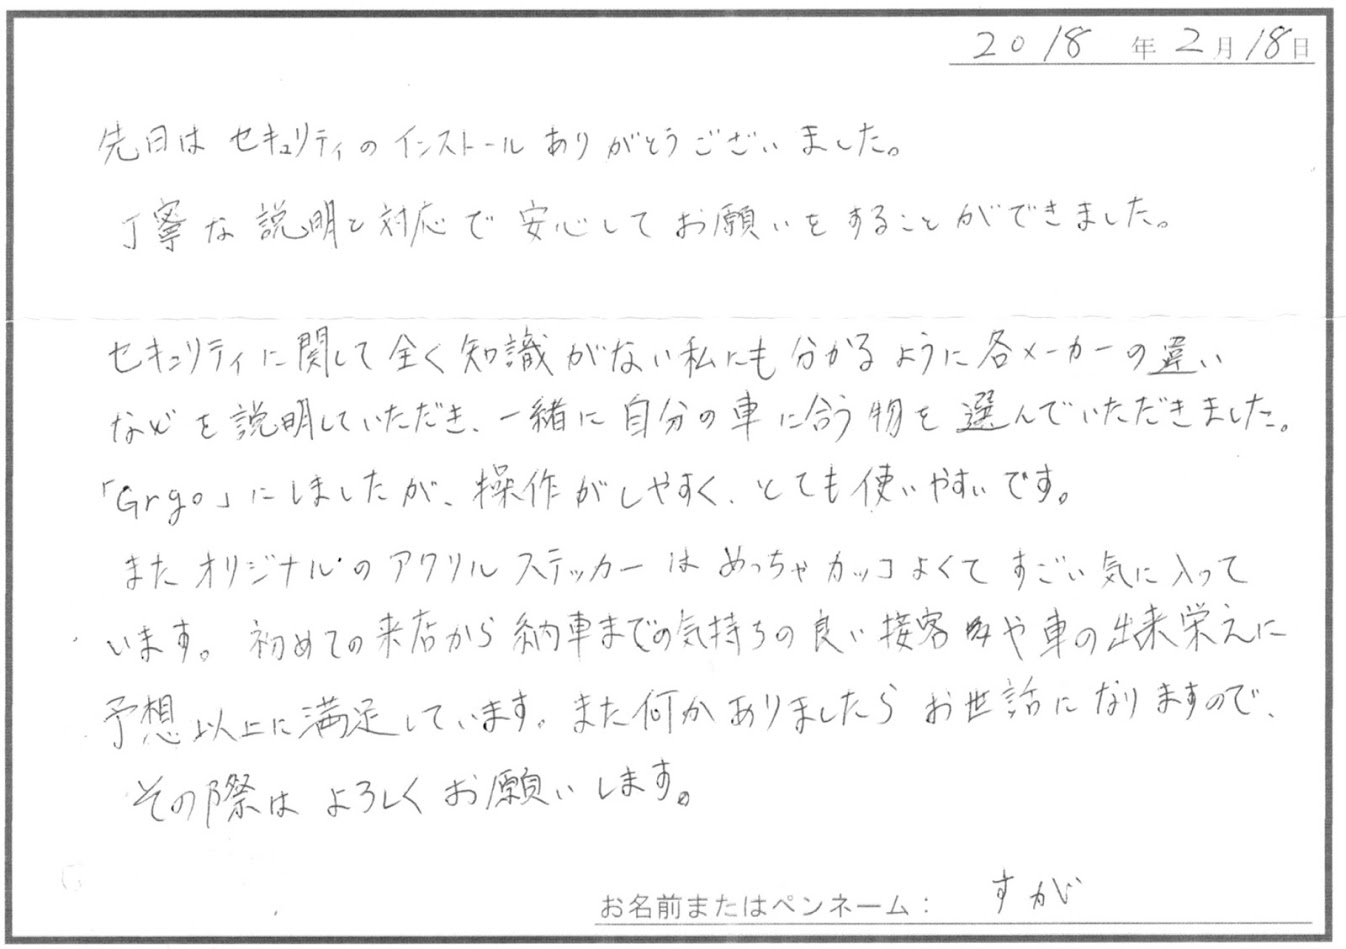 2018 年 2月18日
先日は セキュリティの インストール ありがとうございました。
丁寧な 説明と対応で 安心して お願いをすることができました。
セキュリティに関して 全く知識がない私にも 分かるように各メーカーの違い
などを説明していただき、一緒に自分の車に合う物を選んでいただきました。
「Grgo」にしましたが、操作がしやすく、とても使いやすいです。
またオリジナルのアクリルステッカーはめっちゃカッコよくてすごい気に入って
います。初めての来店から納車までの気持ちの良い接客や車の出来栄えに
予想以上に満足しています。また何かありましたらお世話になりますので、
その際は よろしくお願いします。
お名前またはペンネーム： すが